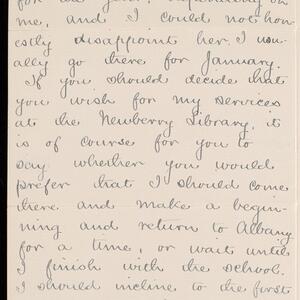 me, and I could not hon-
estly disappoint her. I usu-
ally go there for January.
If you should decide that
you wish for my services
at the Newberry Library, it
is of course for you to
say whether you would
prefer that I should come
there and make a begin-
ning and return to Albany
for a time, or wait until
I finish with the school.
I should incline to the first